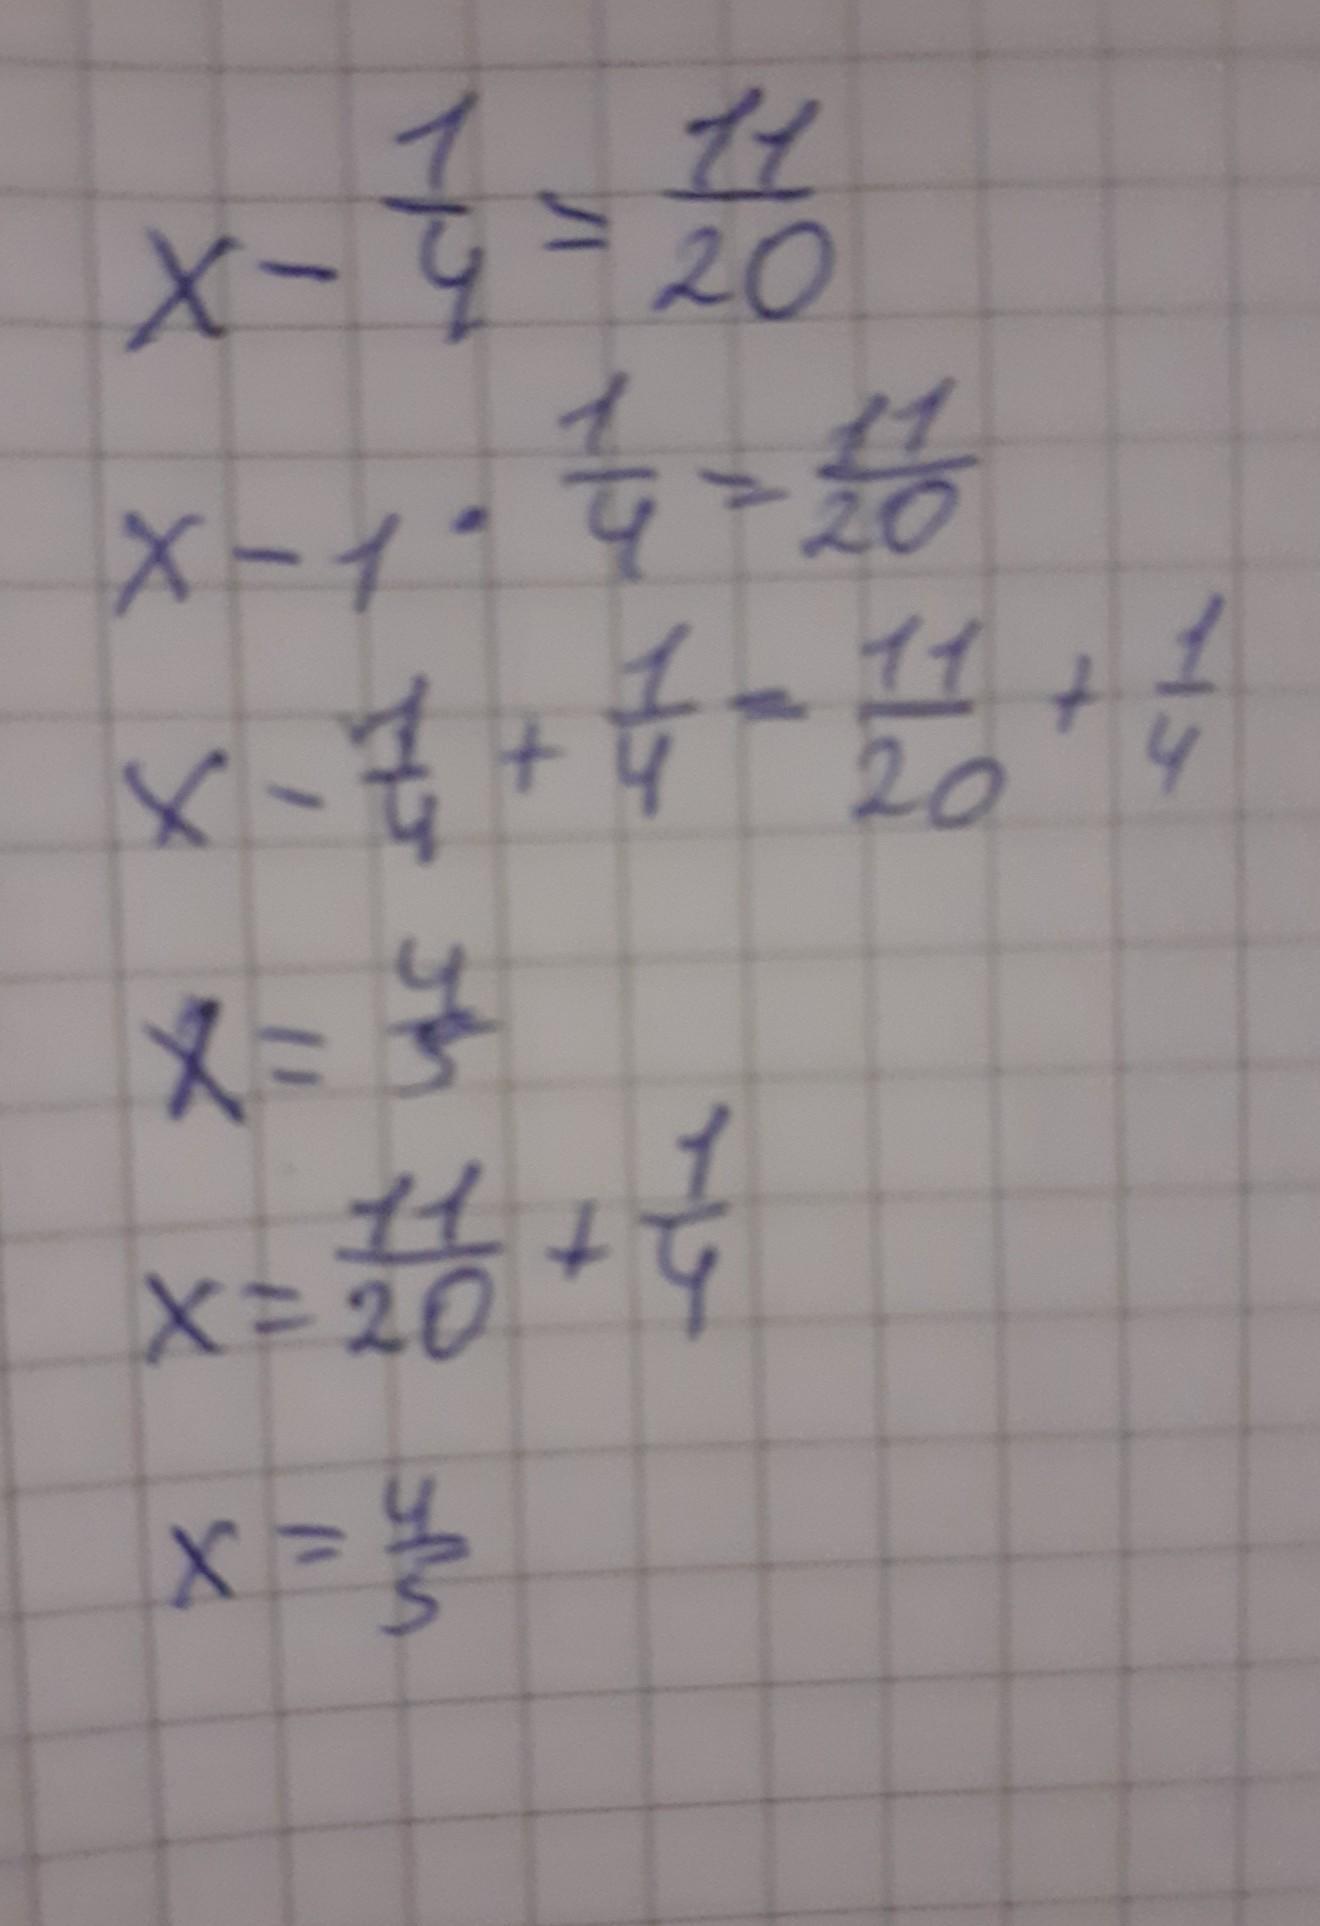 x - 1/4 = 11/20
x - 1 · 1/4 = 11/20
x - 1/4 + 1/4 = 11/20 + 1/4
x = 4/5
x = 11/20 + 1/4
x = 4/5